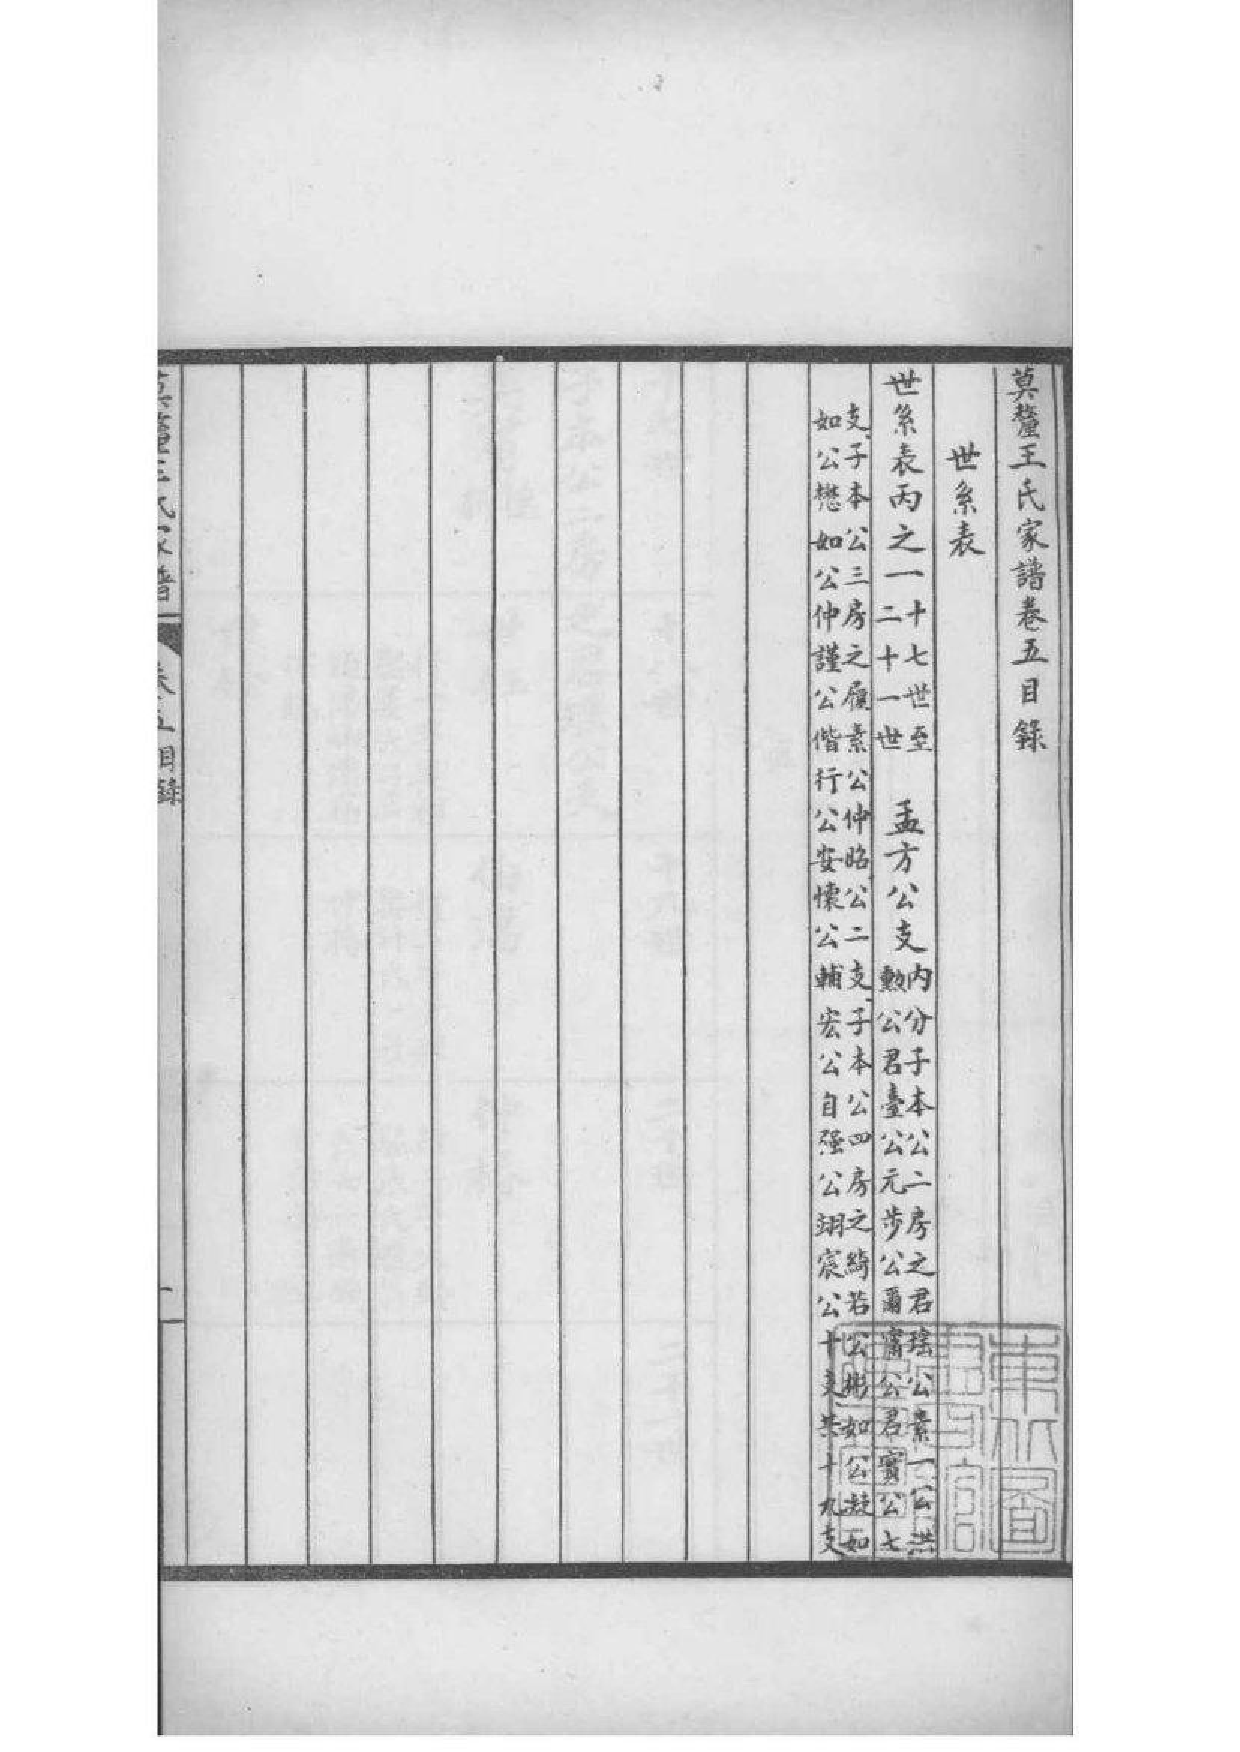 莫釐王氏家譜卷五目錄
世系表
世系表丙之一 十七世至二十一世 孟方公支 內分子本公二房之君瑤公素一公洪
勲公君臺公元步公爾甯公君賓公七
支子本公三房之履素公仲昭公二支子本公四房之綺若公彬如公凝如
如公懋如公仲謹公偕行公安懷公輔宏公自强公翊宸公十支共十九支
莫釐王氏家譜
卷五目錄
一